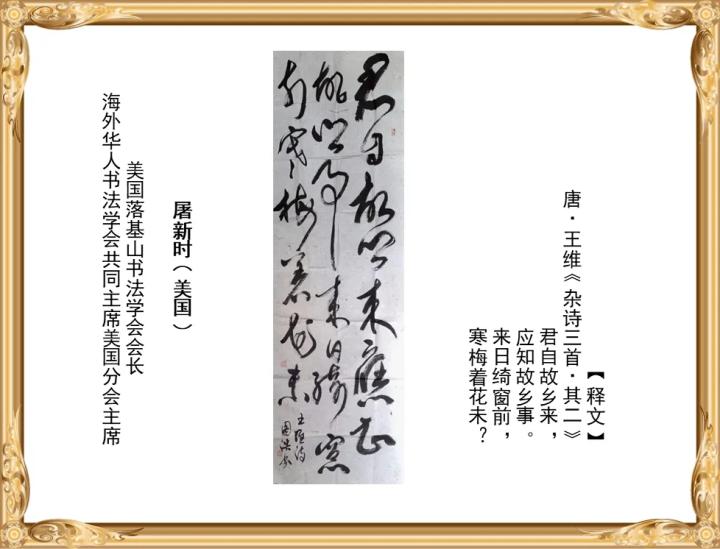 【释文】
唐·王维《杂诗三首·其二》
君自故乡来，
应知故乡事。
来日绮窗前，
寒梅着花未？
君自故乡来应知
故乡事来日绮窗
前寒梅着花未
王维诗
屠新时（美国）
美国落基山书法学会会长
海外华人书法学会共同主席美国分会主席